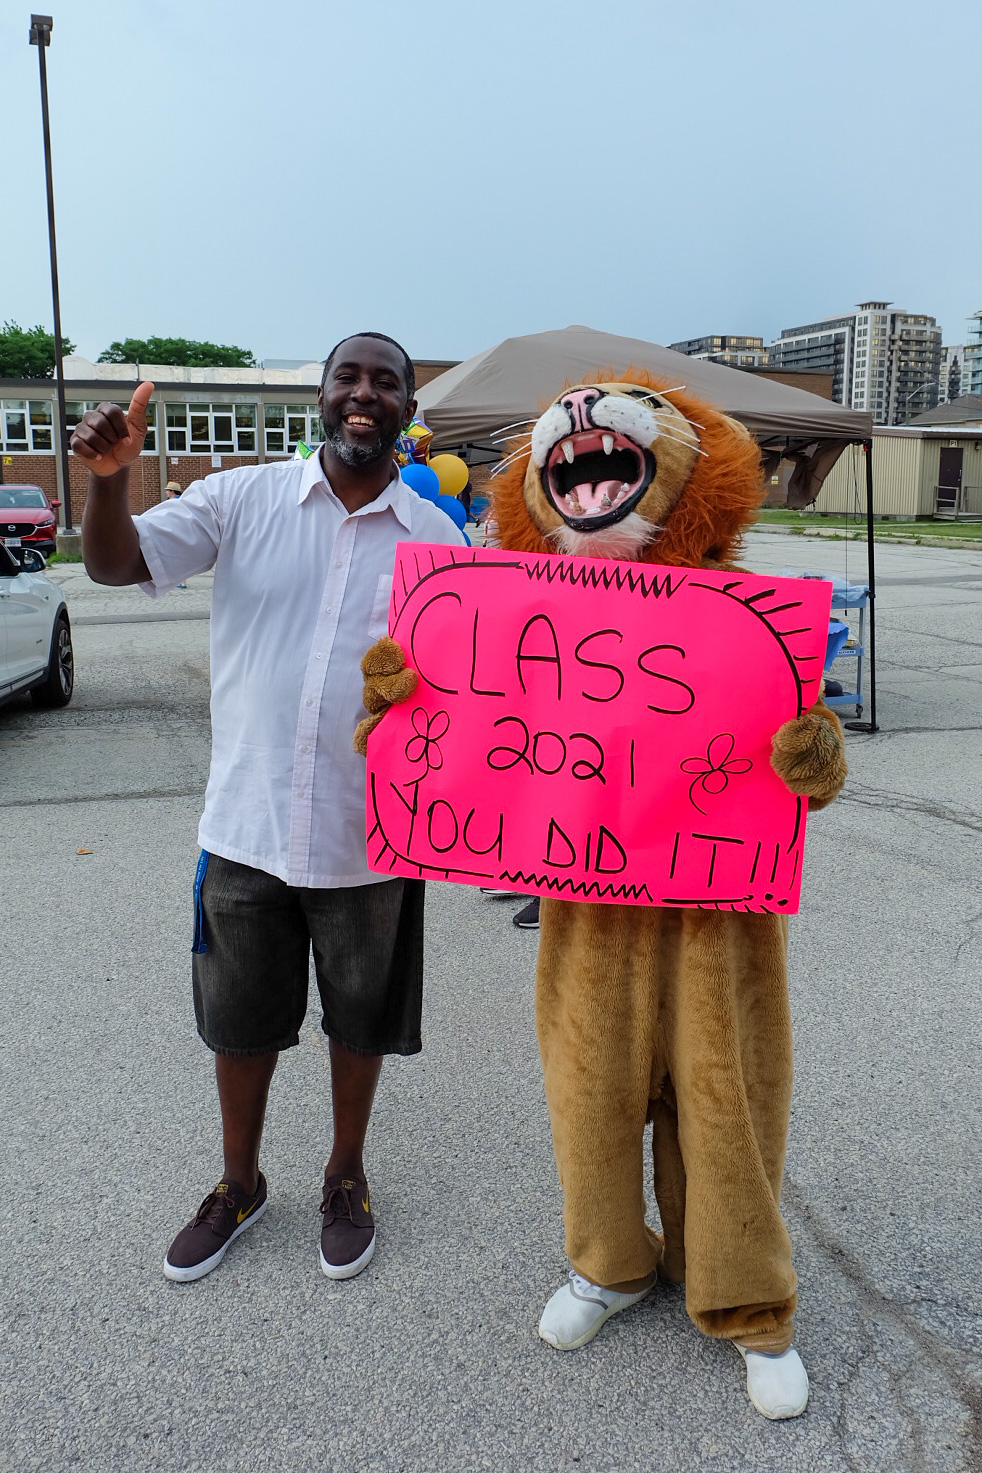 CLASS
2021
YOU DID IT!!!